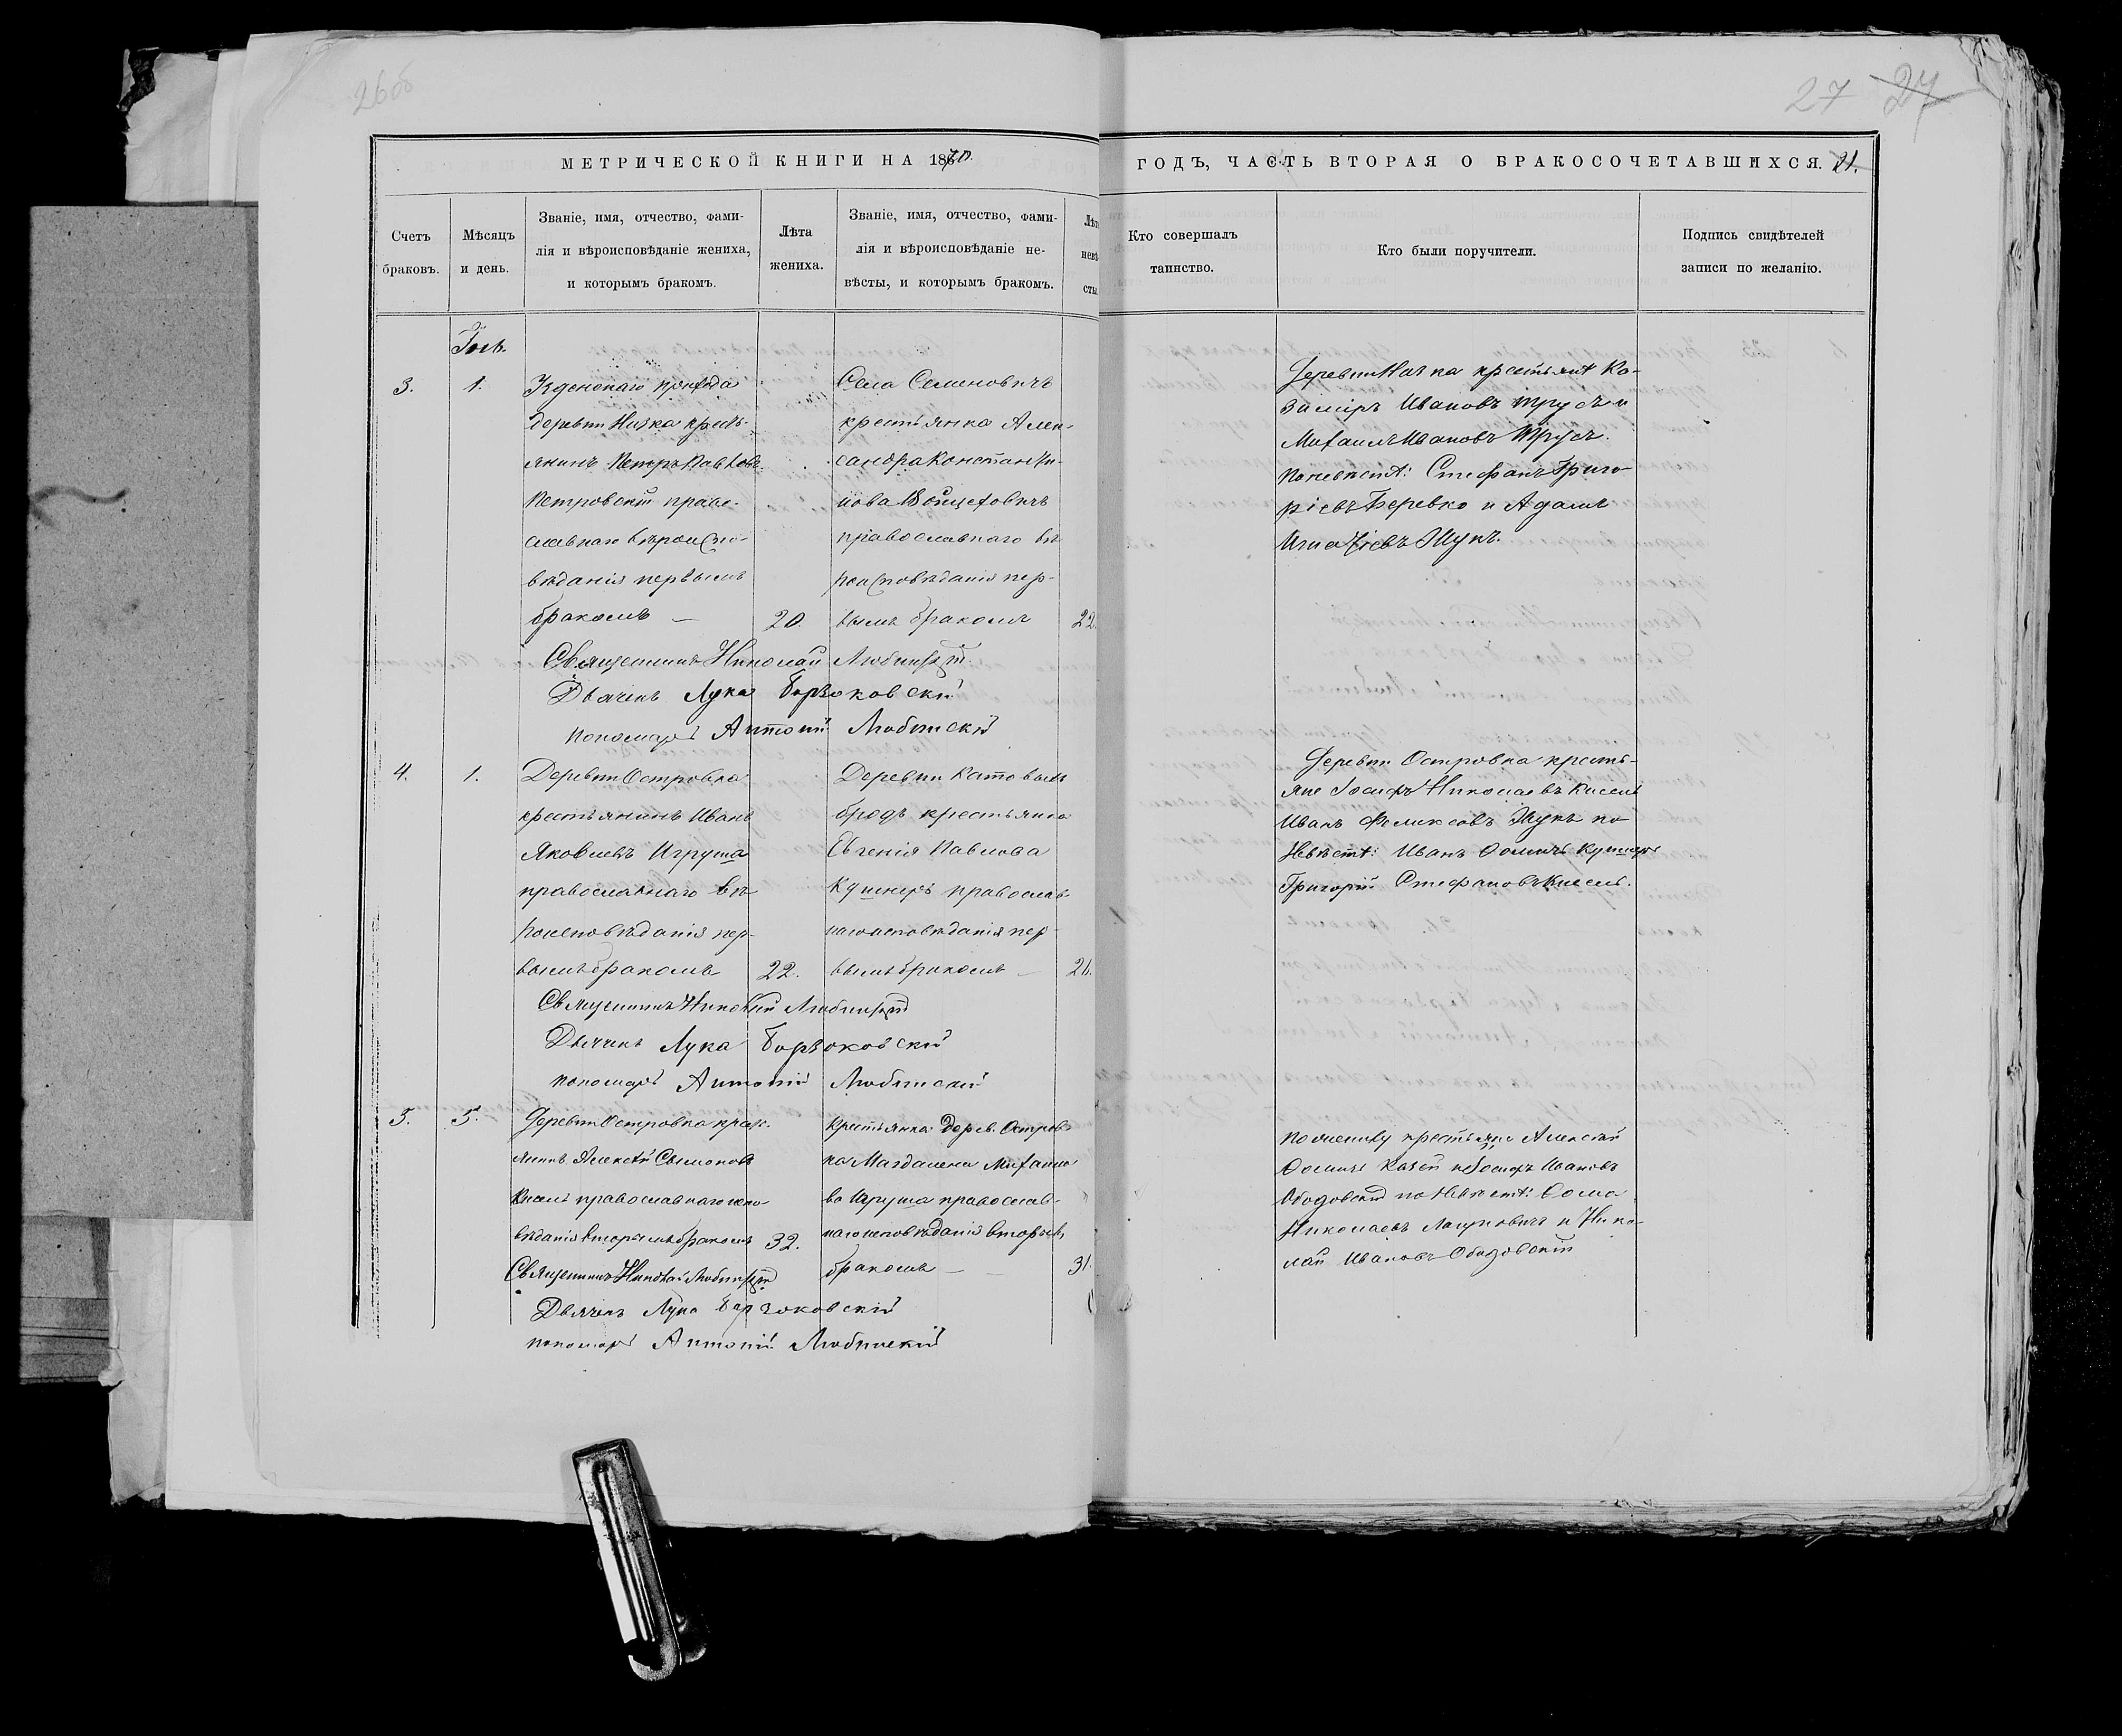 26об
27 27
МЕТРИЧЕСКОЙ КНИГИ НА 1870.
ГОДЪ, ЧАСТЬ ВТОРАЯ О БРАКОСОЧЕТАВШИХСЯ. 21.
Счетъ браковъ.
Мѣсяцъ и день.
Званіе, имя, отчество, фами-
лія и вѣроисповѣданіе жениха,
и которымъ бракомъ.
Лѣта
жениха.
Званіе, имя, отчество, фами-
лія и вѣроисповѣданіе не-
вѣсты, и которымъ бракомъ.
Лѣта
невѣ
сты
Кто совершалъ
таинство.
Кто были поручители.
Подпись свидѣтелей
записи по желанію.
3. 1.
прихода
деревни Низка кресть-
янинъ Петръ Павловъ
Петровскій право-
славнаго вѣроиспо-
вѣданія первымъ
бракомъ — 20.
Села Семеновичъ
крестьянка Алек-
сандра Константи-
нова Войцеховичъ
православнаго вѣ
роисповѣданія пер-
вымъ бракомъ 22.
крестьяне Ка-
зиміръ Ивановъ Трусъ и
Михаилъ Ивановъ Трусъ.
По невѣстѣ: Стефанъ Григо-
ріевъ Веревко и Адамъ
Игнатіевъ Жукъ.
Священникъ Николай Любинскій.
Дьячекъ Лука
пономарь Антоній Любинскій
4. 1.
Деревни Островка
крестьянинъ Иванъ
Яковлевъ Игруша
православнаго вѣ
роисповѣданія пер-
вымъ бракомъ 22.
Деревни
бродъ крестьянка
Евгенія Павлова
Кушнеръ православ-
наго исповѣданія пер-
вымъ бракомъ — 21.
Деревни Островка кресть-
яне Іосифъ Николаевъ Кисель
Иванъ Феликсовъ Жукъ по
Невѣстѣ: Иванъ Ѳоминъ Кушнеръ
Григорій Стефановъ Кисель.
Священникъ Николай Любинскій
Дьячекъ Лука
пономарь Антоній Любинскій
5. 5.
Деревни Островка крест.
янинъ Алексѣй Симоновъ
Кисель православнаго испо-
вѣданія вторымъ бракомъ 32.
Крестьянка дерев. Островка
Магдалена Михайло
ва Игруша православ-
наго исповѣданія вторымъ
бракомъ — 31.
По жениху крестьяне Алексѣй
Ѳоминъ и Іосифъ Ивановъ
Ободовскій по Невѣстѣ: Ѳома
Николаевъ и Нико-
лай Ивановъ Ободовскій
Священникъ Николай Любинскій
Дьячекъ Лука
пономарь Антоній Любинскій